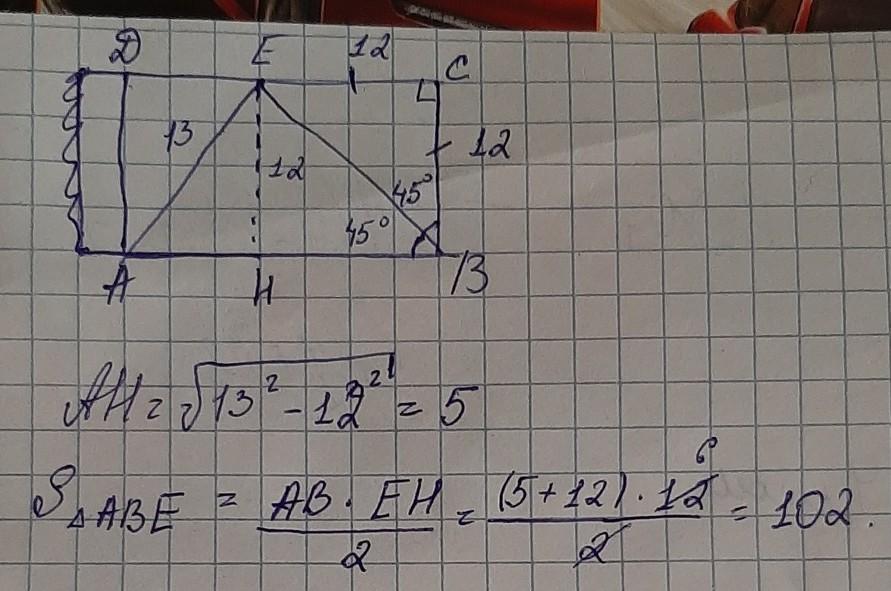 D E 12 C
13 12 45° 12
45°
A H B
AH = √13² - 12² = 5
S△ABE = AB · EH / 2 = (5 + 12) · 12 6 / 2 = 102.